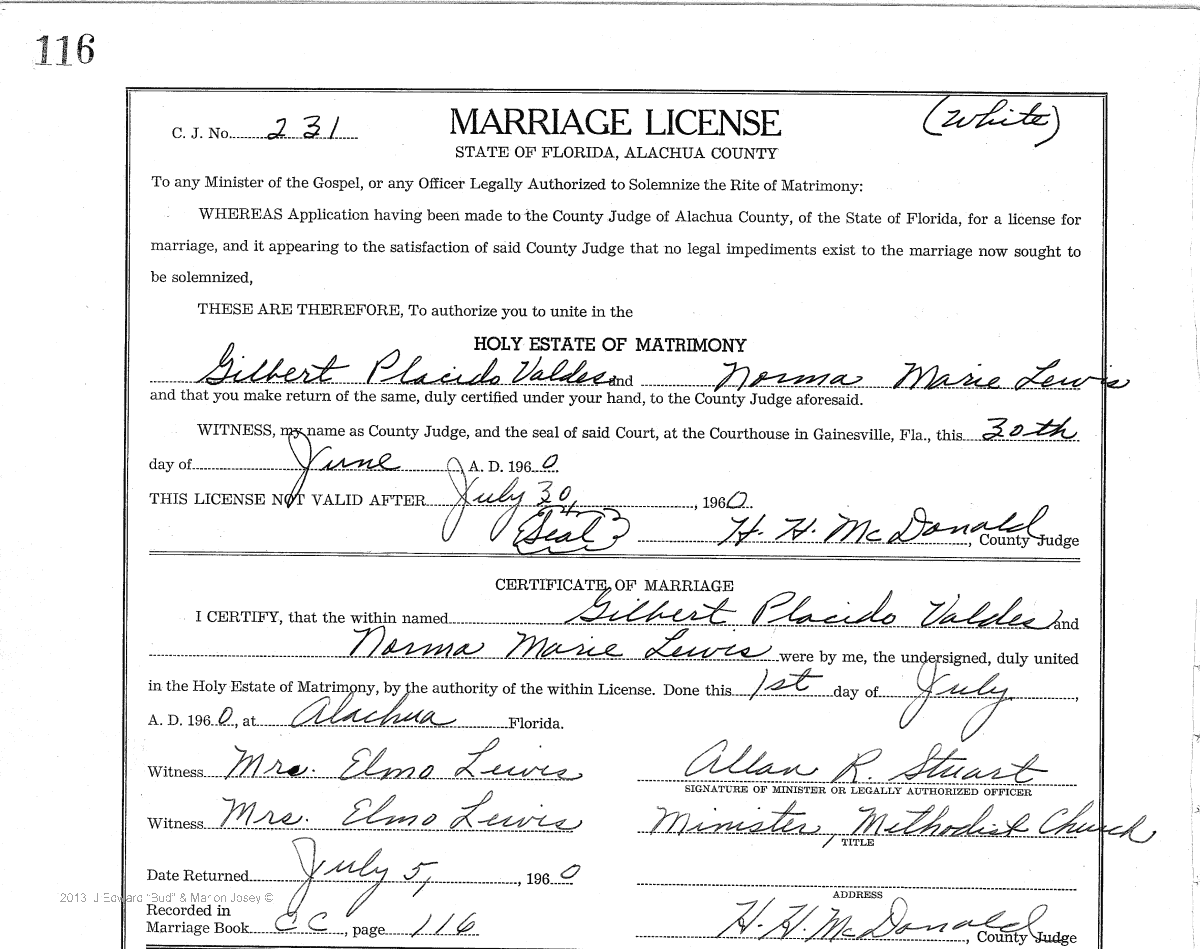 116
C. J. No. 231
MARRIAGE LICENSE
(White)
STATE OF FLORIDA, ALACHUA COUNTY
To any Minister of the Gospel, or any Officer Legally Authorized to Solemnize the Rite of Matrimony:
WHEREAS Application having been made to the County Judge of Alachua County, of the State of Florida, for a license for
marriage, and it appearing to the satisfaction of said County Judge that no legal impediments exist to the marriage now sought to
be solemnized,
THESE ARE THEREFORE, To authorize you to unite in the
HOLY ESTATE OF MATRIMONY
Gilbert Placido Valdes and Norma Marie Lewis
and that you make return of the same, duly certified under your hand, to the County Judge aforesaid.
WITNESS, my name as County Judge, and the seal of said Court, at the Courthouse in Gainesville, Fla., this 30th
day of June A. D. 1960.
THIS LICENSE NOT VALID AFTER July 30, , 1960.
(Seal) H. H. McDonald, County Judge
CERTIFICATE OF MARRIAGE
I CERTIFY, that the within named Gilbert Placido Valdes and
Norma Marie Lewis were by me, the undersigned, duly united
in the Holy Estate of Matrimony, by the authority of the within License. Done this 1st day of July,
A. D. 1960, at Alachua Florida.
Witness Mrs. Elmo Lewis
Allan R. Stuart
SIGNATURE OF MINISTER OR LEGALLY AUTHORIZED OFFICER
Witness Mrs. Elmo Lewis
Minister, Methodist Church
TITLE
Date Returned July 5, , 1960
ADDRESS
2013 J Edward "Bud" & Marion Josey ©
Recorded in
Marriage Book CC, page 116
H. H. McDonald, County Judge